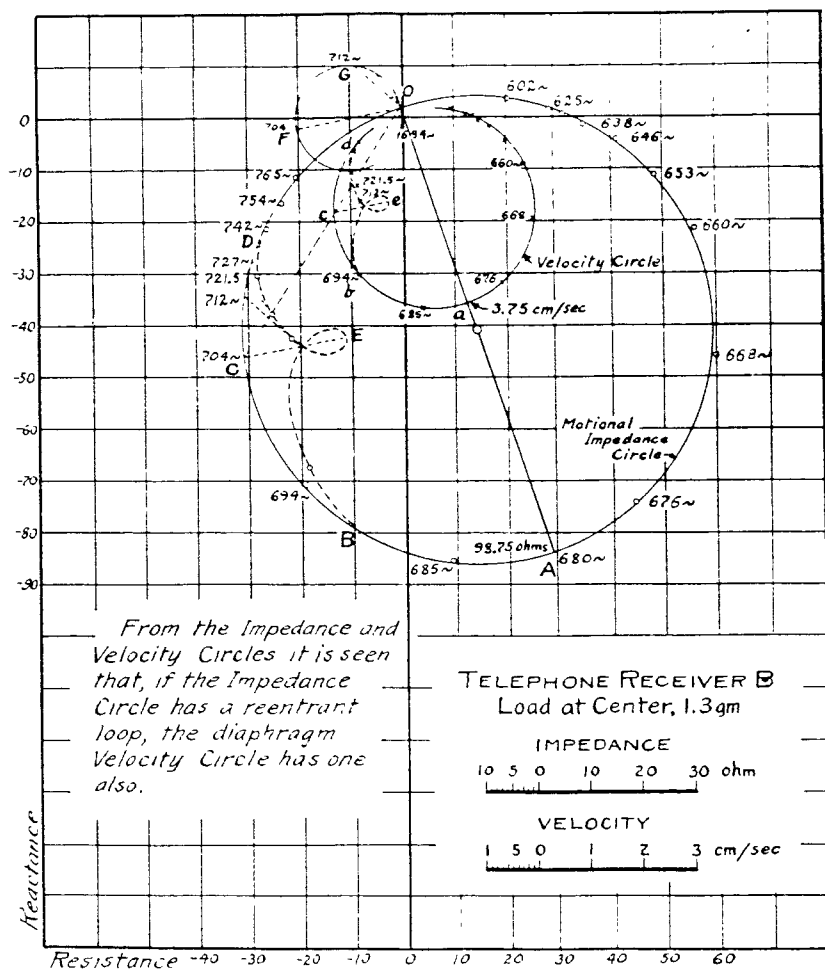 712~
G
O
602~
625~
638~
646~
653~
660~
668~
676~
680~
685~
694~
704~
712~
721.5
727~
742~
D
754~
765~
704
F
1694~
d
660~
668
676
685~
694~
b
c
721.5~
713~
e
a
3.75 cm/sec
Velocity Circle
E
C
B
A
98.75 ohms
Motional
Impedance
Circle
0
-10
-20
-30
-40
-50
-60
-70
-80
-90
From the Impedance and
Velocity Circles it is seen
that, if the Impedance
Circle has a reentrant
loop, the diaphragm
Velocity Circle has one
also.
TELEPHONE RECEIVER B
Load at Center, 1.3gm
IMPEDANCE
10 5 0 10 20 30 ohm
VELOCITY
1 5 0 1 2 3 cm/sec
Reactance
Resistance -40 -30 -20 -10 0 10 20 30 40 50 60